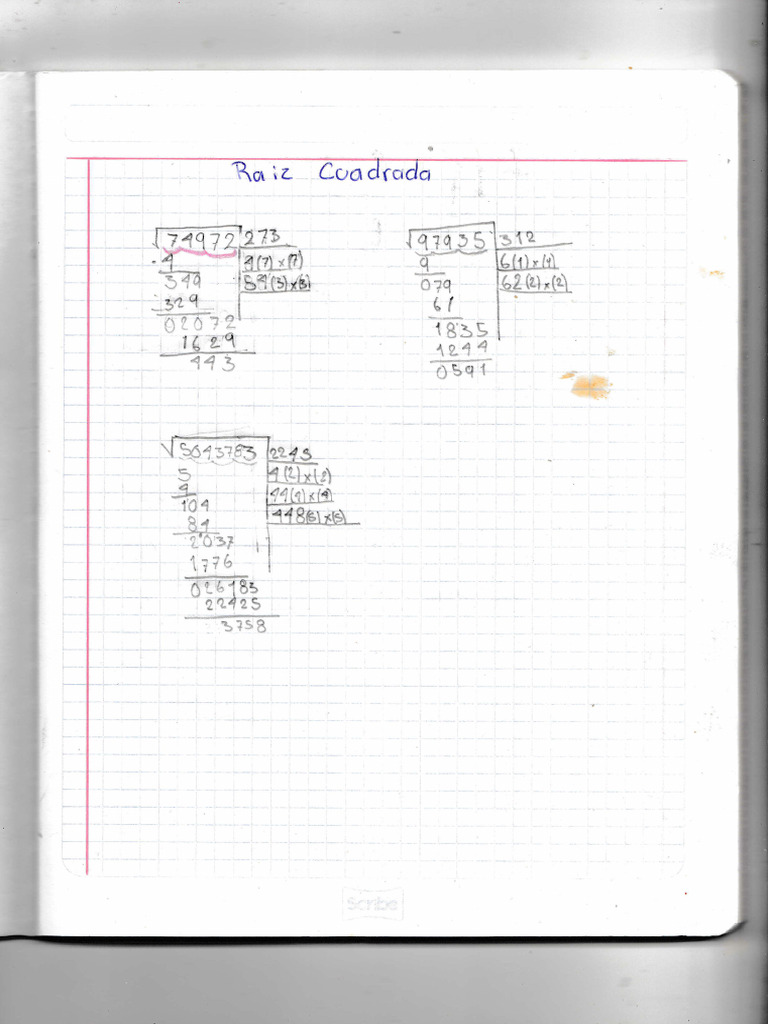 Raiz Cuadrada
√74972 273
4 4(7)x(7)
349 54(3)x(3)
329
02072
1629
443
√97935 312
9 6(1)x(1)
079 62(2)x(2)
61
1835
1244
0591
√5043783 2245
5 4(2)x(2)
4 44(4)x(4)
104 448(5)x(5)
84
2037
1776
026183
22425
3758
Scribe